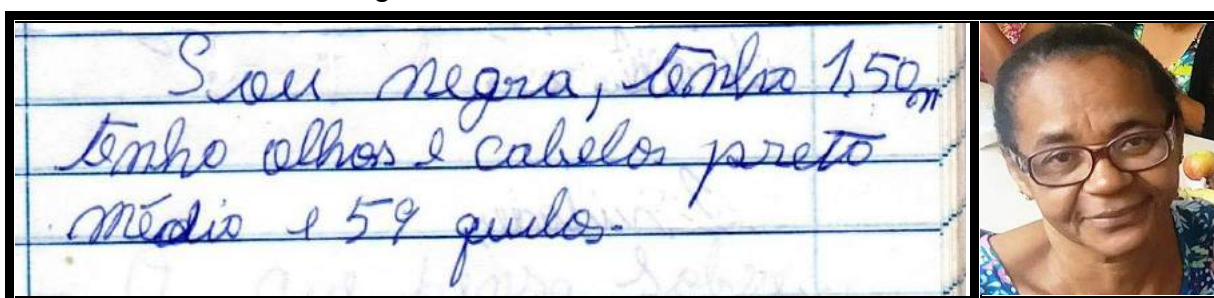 Sou negra, tenho 1,50m
tenho olhos e cabelos preto
médio e 59 quilos.